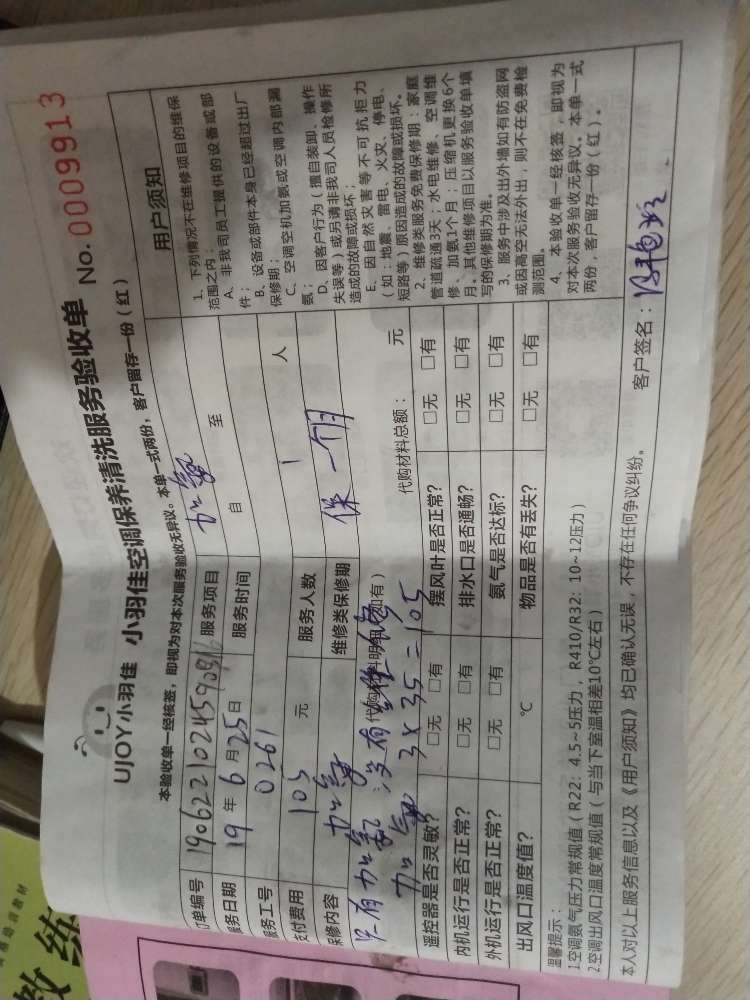 UJOY小羽佳 小羽佳空调保养清洗服务验收单 No. 0009913
本验收单一经核签，即视为对本次服务验收无异议。本单一式两份，客户留存一份（红）
订单编号 190622102459091 服务项目 加氨
服务日期 19 年 6 月 25 日 服务时间 自 至
服务工号 0261 人
支付费用 105 元 服务人数 1
保修内容 加氨 维修类保修期 保一个月
代购材料明细（如有） 代购材料总额： 元
只有加氨 没有维修
加氨 3×35=105
遥控器是否灵敏？ □无 □有 摆风叶是否正常？ □无 □有
内机运行是否正常？ □无 □有 排水口是否通畅？ □无 □有
外机运行是否正常？ □无 □有 氨气是否达标？ □无 □有
出风口温度值？ ℃ 物品是否有丢失？ □无 □有
用户须知
1、下列情况不在维修项目的维保
范围之内：
A、非我司员工提供的设备或部
件；
B、设备或部件本身已经超过出厂
保修期；
C、空调空机加氨或空调内部漏
氨；
D、因客户行为（擅自装卸、操作
失误等）或另请非我司人员检修所
造成的故障或损坏；
E、因自然灾害等不可抗拒力
（如：地震、雷电、火灾、停电、
短路等）原因造成的故障或损坏。
2、维修类服务免费保修期：家庭
管道疏通3天；水电维修、空调维
修、加氨1个月；压缩机更换6个
月。其他维修项目以服务验收单填
写的保修期为准。
3、服务中涉及出外墙如有防盗网
或因高空无法外出，则不在免费检
测范围。
4、本验收单一经核签，即视为
对本次服务验收无异议。本单一式
两份，客户留存一份（红）。
温馨提示：
1空调氨气压力常规值（R22：4.5~5压力，R410/R32：10~12压力）
2空调出风口温度常规值（与当下室温相差10℃左右）
本人对以上服务信息以及《用户须知》均已确认无误，不存在任何争议纠纷。 客户签名：
教练